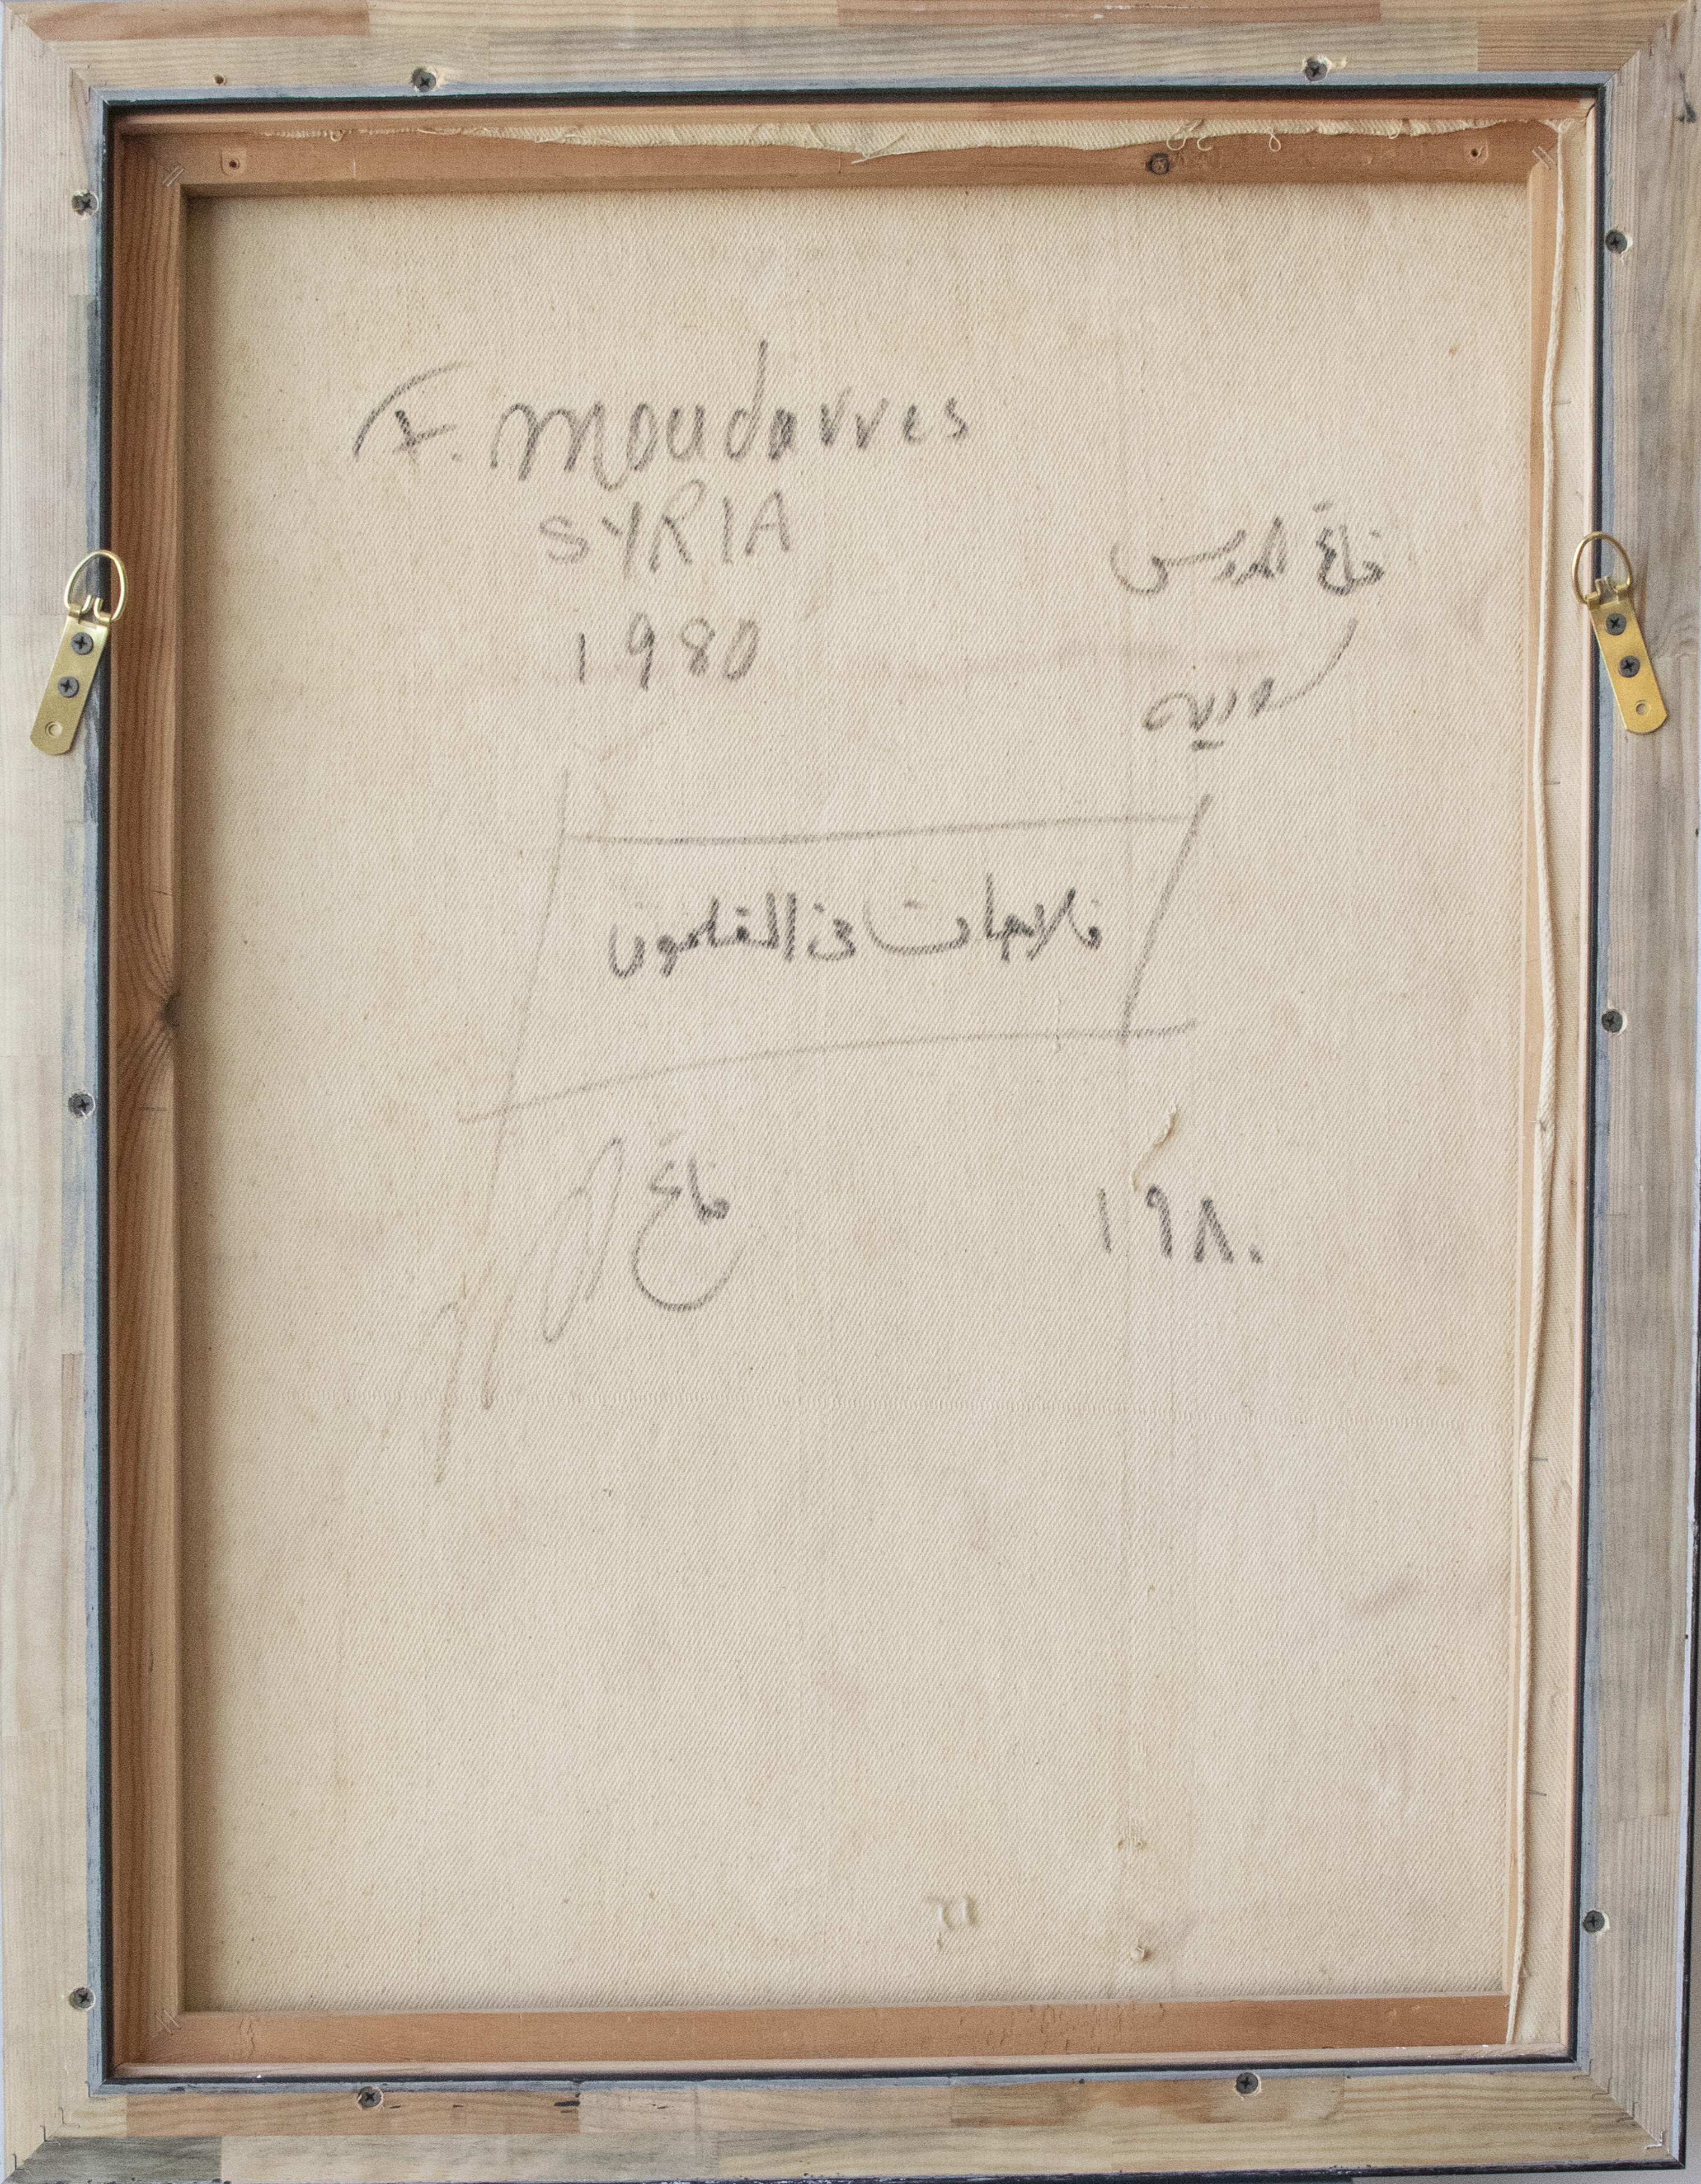 F. Moudarres
SYRIA
1980
فاتح المدرس
سورية
فلاحات في القلمون
فاتح
١٩٨٠